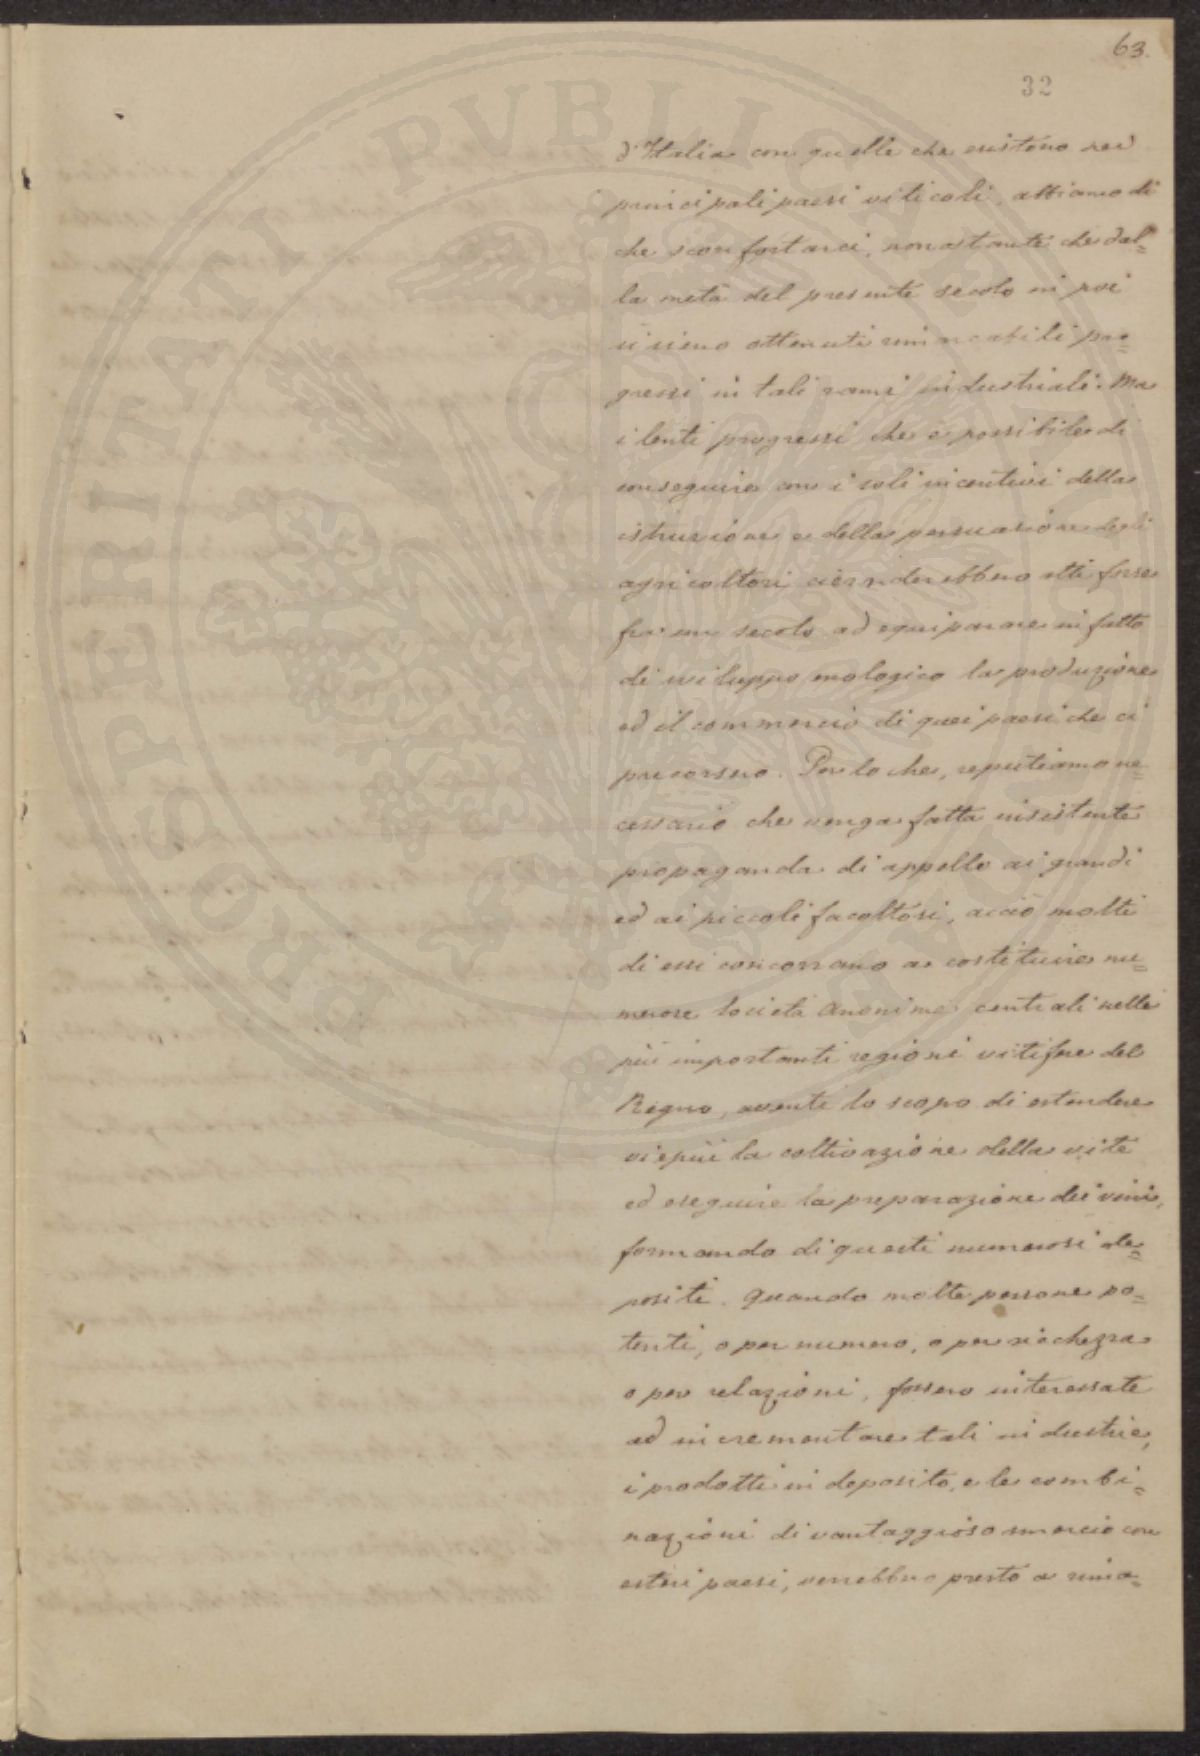 63.
32
PROSPERITATI PVBLICAE AVGENDAE
d'Italia con quelle che esistono nei
principali paesi viticoli, abbiamo di
che sconfortarci, nonostante che dal=
la metà del presente secolo in poi
si sieno ottenuti rimarcabili pro=
gressi in tali rami industriali. Ma
i lenti progressi che è possibile di
conseguire con i soli incentivi della
istruzione e della persuasione degli
agricoltori ci renderebbero atti forse
fra un secolo ad equiparare in fatto
di sviluppo enologico la produzione
ed il commercio di quei paesi che ci
precorsero. Per lo che, reputiamo ne=
cessario che venga fatta insistente
propaganda di appello ai grandi
ed ai piccoli facoltosi, acciò molti
di essi concorrano a costituire nu=
merose Società Anonime centrali nelle
più importanti regioni vitifere del
Regno, aventi lo scopo di estendere
viepiù la coltivazione della vite
ed eseguire la preparazione dei vini,
formando di questi numerosi de=
positi. Quando molte persone po=
tenti, o per numero, o per ricchezza
o per relazioni, fossero interessate
ad incrementare tali industrie,
i prodotti in deposito, e le combi=
nazioni di vantaggioso smercio con
esteri paesi, verrebbero presto a rima=